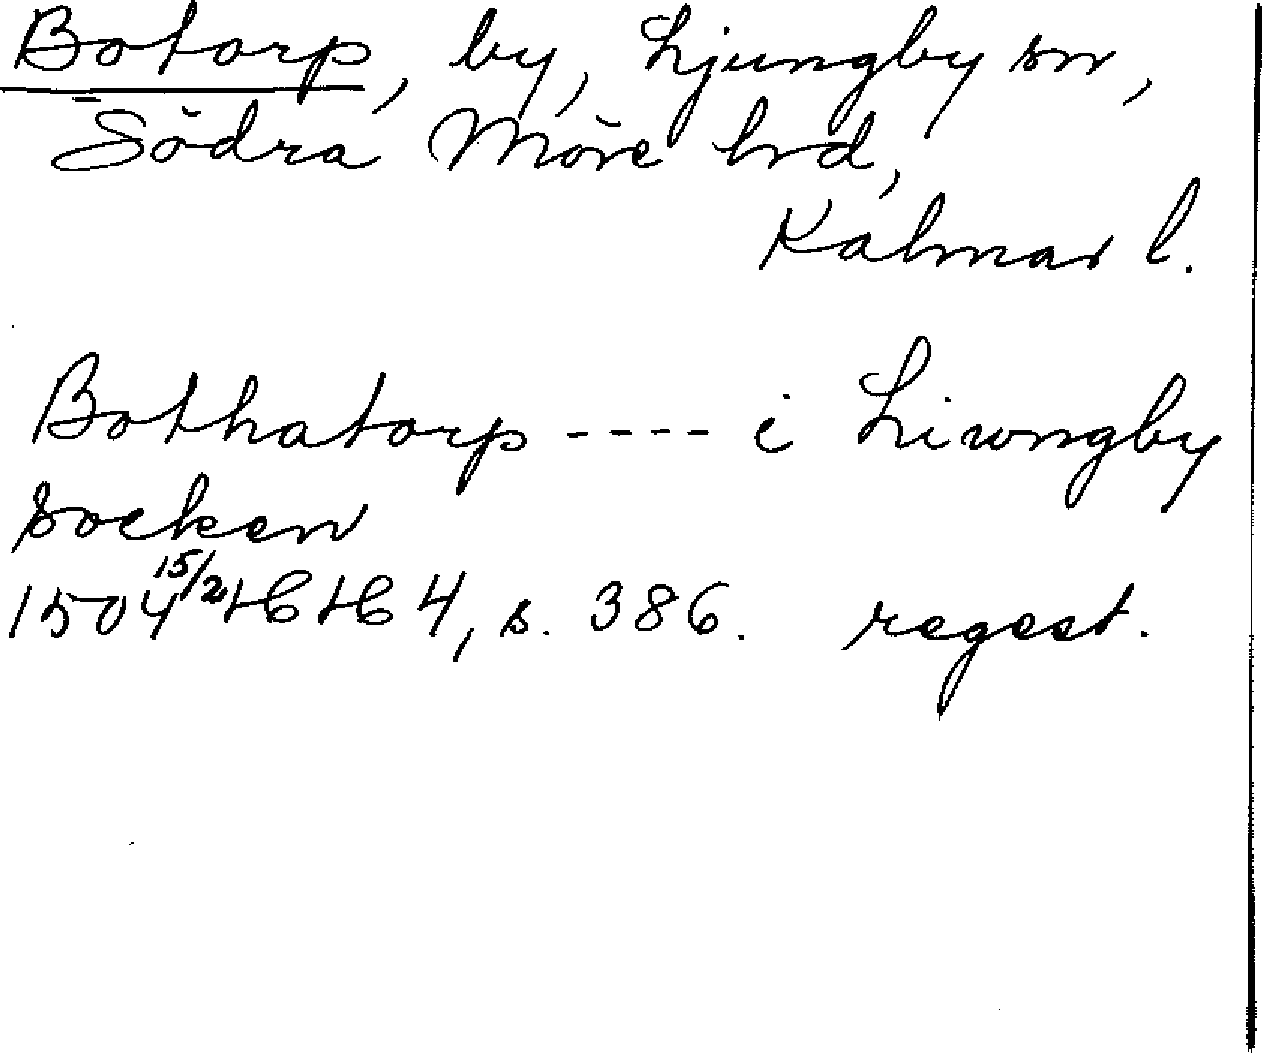 Botorp, by, Ljungby sn,
Södra Möre hrd,
Kalmar l.
Bothatorp ---- i Liwngby
Socken
1504 15/2 HH 4, s. 386. regest.